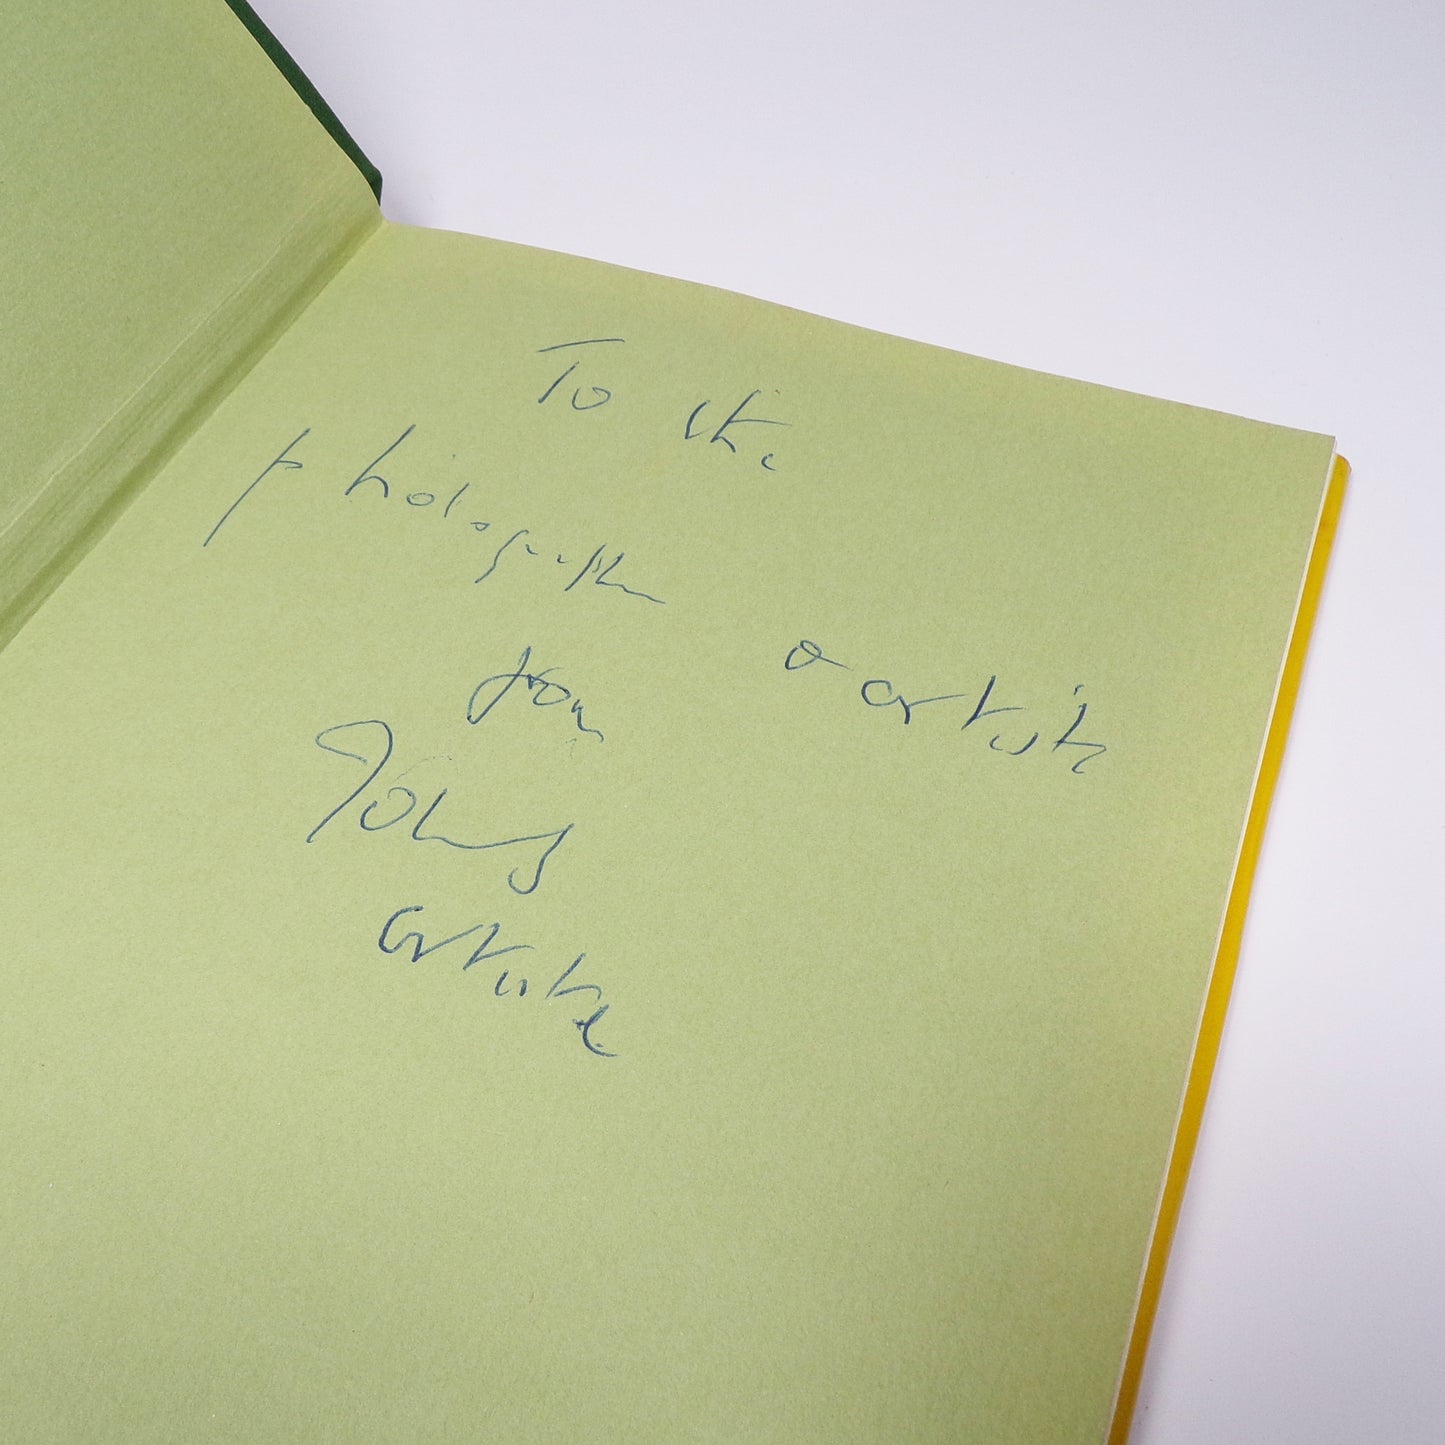 To the
photographer
& artist
from
John
artist